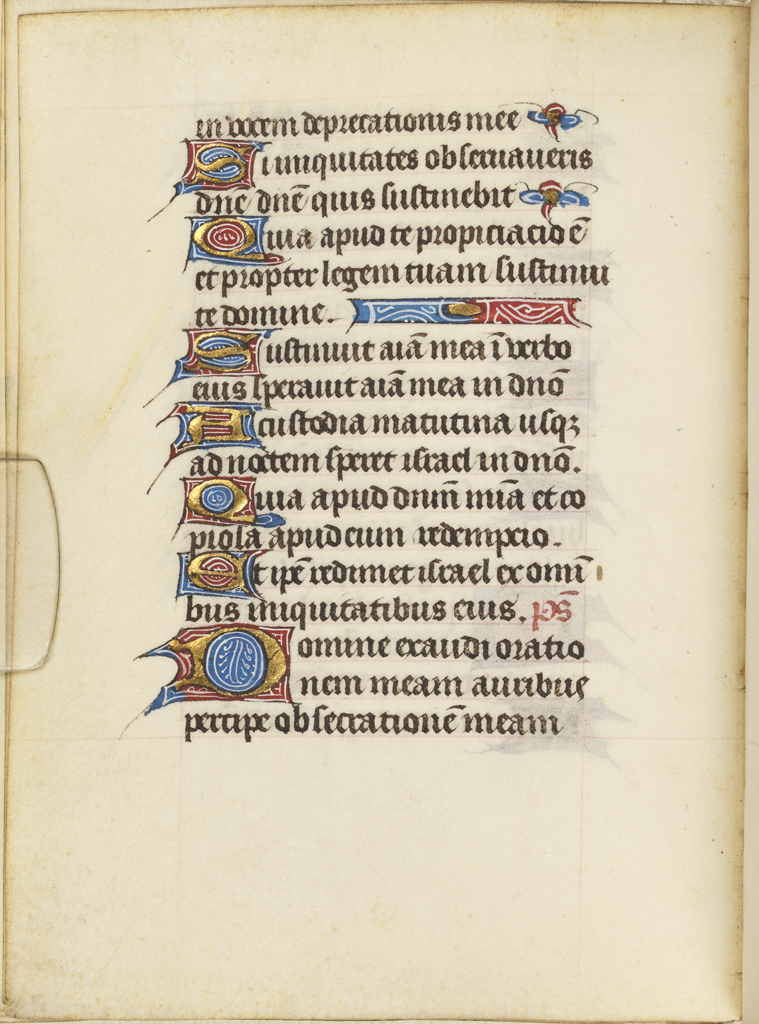 in vocem deprecationis mee
Si iniquitates obseruaueris
dnē dnē quis sustinebit
Quia apud te propiciacio ē
et propter legem tuam sustinui
te domine.
Sustinuit aīā mea ī verbo
eius sperauit aīā mea in dnō
A custodia matutina usqꝫ
ad noctem speret israel in dnō.
Quia apud dnm̄ mīa et co
piosa apud eum redempcio.
Et ipē redimet israel ex omī
bus iniquitatibus eius. ps̄
Domine exaudi oratio
nem meam auribus
percipe obsecrationē meam